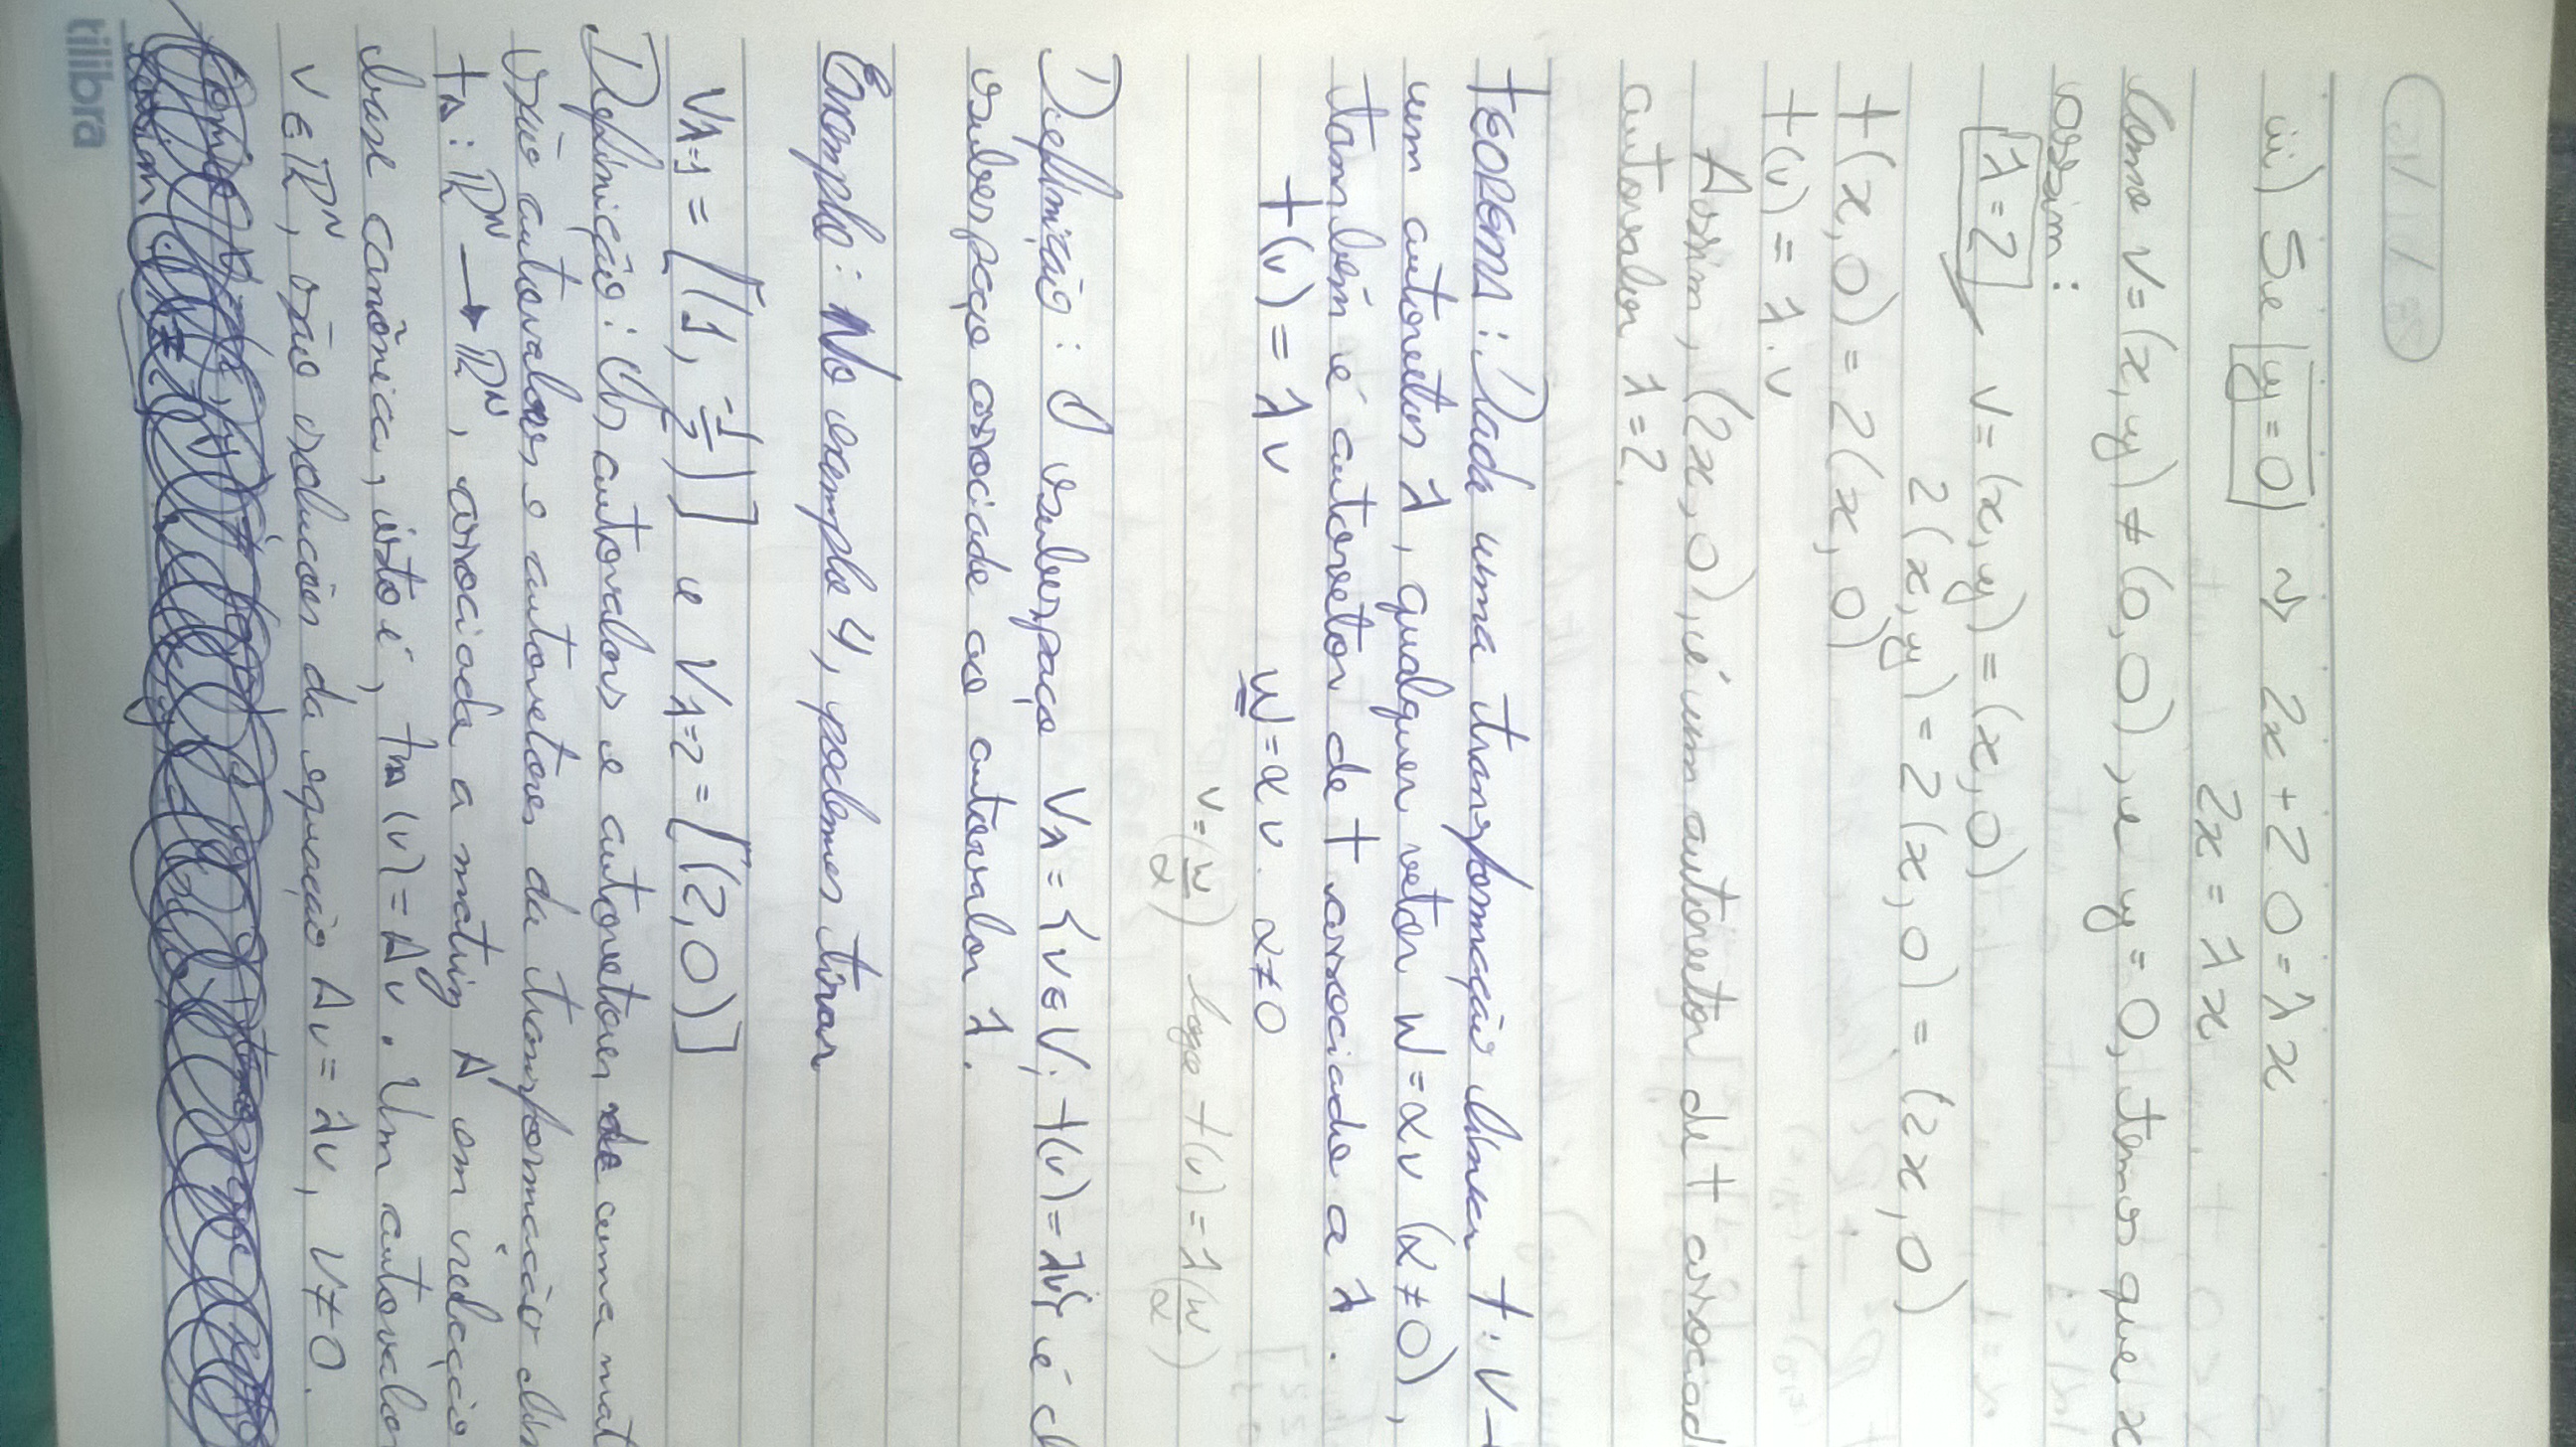 iii) Se y=0 ⇒ 2x + 2 0 = λx
2x = λx
Como V=(x,y) ≠ (0,0), e y=0, temos que x
assim:
λ=2 V=(x,y)=(x,0)
2(x,y)=2(x,0)=(2x,0)
T(x,0)=2(x,0)
T(v)=λ.v
Assim, (2x,0), é um autovetor de T associad
autovalor λ=2.
TEOREMA: Dada uma transformação linear T: V→
um autovetor λ, qualquer vetor W=αv (α≠0),
também é autovetor de T associado a λ.
T(v)=λv W=αv. α≠0
v=(w/α) logo T(v)=λ(w/α)
Definição: O subespaço Vλ={v∈V; T(v)=λv} é ch
subespaço associado ao autovalor λ.
Exemplo: No exemplo 4, podemos tirar
Vλ=1=[(1, -1/2)] e Vλ=2=[(2,0)]
Definição: Os autovalors e autovetores de uma mat
são autovalores e autovetores da transformação lin
TA: ℝᴺ → ℝᴺ, associada a matriz A em relação
base canônica, isto é, TA(v)=Av. Um autovalo
V∈ℝᴺ, são soluções da equação Av=λv, V≠0.
tilibra